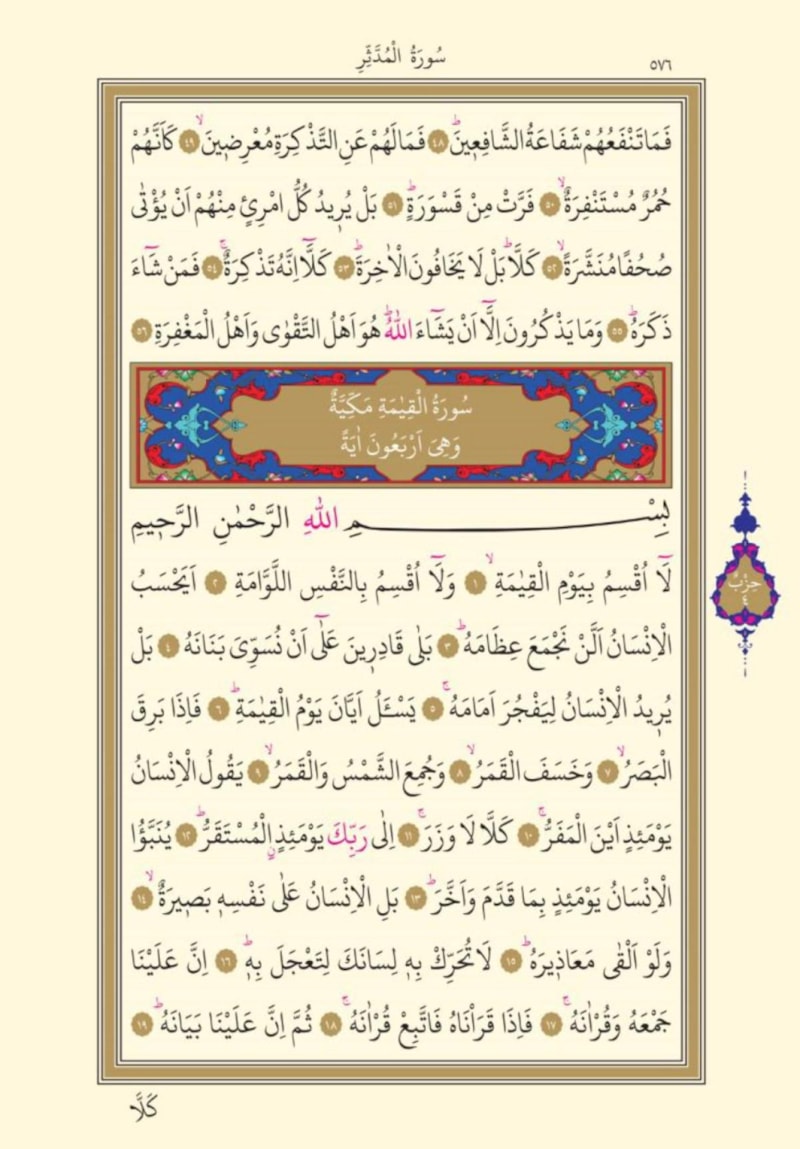 سُورَةُ الْمُدَّثِّرِ
٥٧٦
فَمَا تَنْفَعُهُمْ شَفَاعَةُ الشَّافِع۪ينَۜ ﴿٤٨﴾ فَمَا لَهُمْ عَنِ التَّذْكِرَةِ مُعْرِض۪ينَۙ ﴿٤٩﴾ كَاَنَّهُمْ
حُمُرٌ مُسْتَنْفِرَةٌۙ ﴿٥٠﴾ فَرَّتْ مِنْ قَسْوَرَةٍۜ ﴿٥١﴾ بَلْ يُر۪يدُ كُلُّ امْرِئٍ مِنْهُمْ اَنْ يُؤْتٰى
صُحُفًا مُنَشَّرَةًۙ ﴿٥٢﴾ كَلَّاۜ بَلْ لَا يَخَافُونَ الْاٰخِرَةَۜ ﴿٥٣﴾ كَلَّٓا اِنَّهُ تَذْكِرَةٌۚ ﴿٥٤﴾ فَمَنْ شَٓاءَ
ذَكَرَهُۜ ﴿٥٥﴾ وَمَا يَذْكُرُونَ اِلَّٓا اَنْ يَشَٓاءَ اللّٰهُۜ هُوَ اَهْلُ التَّقْوٰى وَاَهْلُ الْمَغْفِرَةِ ﴿٥٦﴾
سُورَةُ الْقِيٰمَةِ مَكِّيَّةٌ
وَهِيَ اَرْبَعُونَ اٰيَةً
بِسْمِ اللّٰهِ الرَّحْمٰنِ الرَّح۪يمِ
لَٓا اُقْسِمُ بِيَوْمِ الْقِيٰمَةِۙ ﴿١﴾ وَلَٓا اُقْسِمُ بِالنَّفْسِ اللَّوَّامَةِ ﴿٢﴾ اَيَحْسَبُ
حِزْبٌ
٤
الْاِنْسَانُ اَلَّنْ نَجْمَعَ عِظَامَهُۜ ﴿٣﴾ بَلٰى قَادِر۪ينَ عَلٰٓى اَنْ نُسَوِّيَ بَنَانَهُ ﴿٤﴾ بَلْ
يُر۪يدُ الْاِنْسَانُ لِيَفْجُرَ اَمَامَهُۚ ﴿٥﴾ يَسْـَٔلُ اَيَّانَ يَوْمُ الْقِيٰمَةِۜ ﴿٦﴾ فَاِذَا بَرِقَ
الْبَصَرُۙ ﴿٧﴾ وَخَسَفَ الْقَمَرُۙ ﴿٨﴾ وَجُمِعَ الشَّمْسُ وَالْقَمَرُۙ ﴿٩﴾ يَقُولُ الْاِنْسَانُ
يَوْمَئِذٍ اَيْنَ الْمَفَرُّۚ ﴿١٠﴾ كَلَّا لَا وَزَرَۚ ﴿١١﴾ اِلٰى رَبِّكَ يَوْمَئِذٍۨ الْمُسْتَقَرُّۜ ﴿١٢﴾ يُنَبَّؤُا
الْاِنْسَانُ يَوْمَئِذٍ بِمَا قَدَّمَ وَاَخَّرَۜ ﴿١٣﴾ بَلِ الْاِنْسَانُ عَلٰى نَفْسِه۪ بَص۪يرَةٌۙ ﴿١٤﴾
وَلَوْ اَلْقٰى مَعَاذ۪يرَهُۜ ﴿١٥﴾ لَا تُحَرِّكْ بِه۪ لِسَانَكَ لِتَعْجَلَ بِه۪ۜ ﴿١٦﴾ اِنَّ عَلَيْنَا
جَمْعَهُ وَقُرْاٰنَهُۚ ﴿١٧﴾ فَاِذَا قَرَأْنَاهُ فَاتَّبِعْ قُرْاٰنَهُۚ ﴿١٨﴾ ثُمَّ اِنَّ عَلَيْنَا بَيَانَهُۜ ﴿١٩﴾
كَلَّا